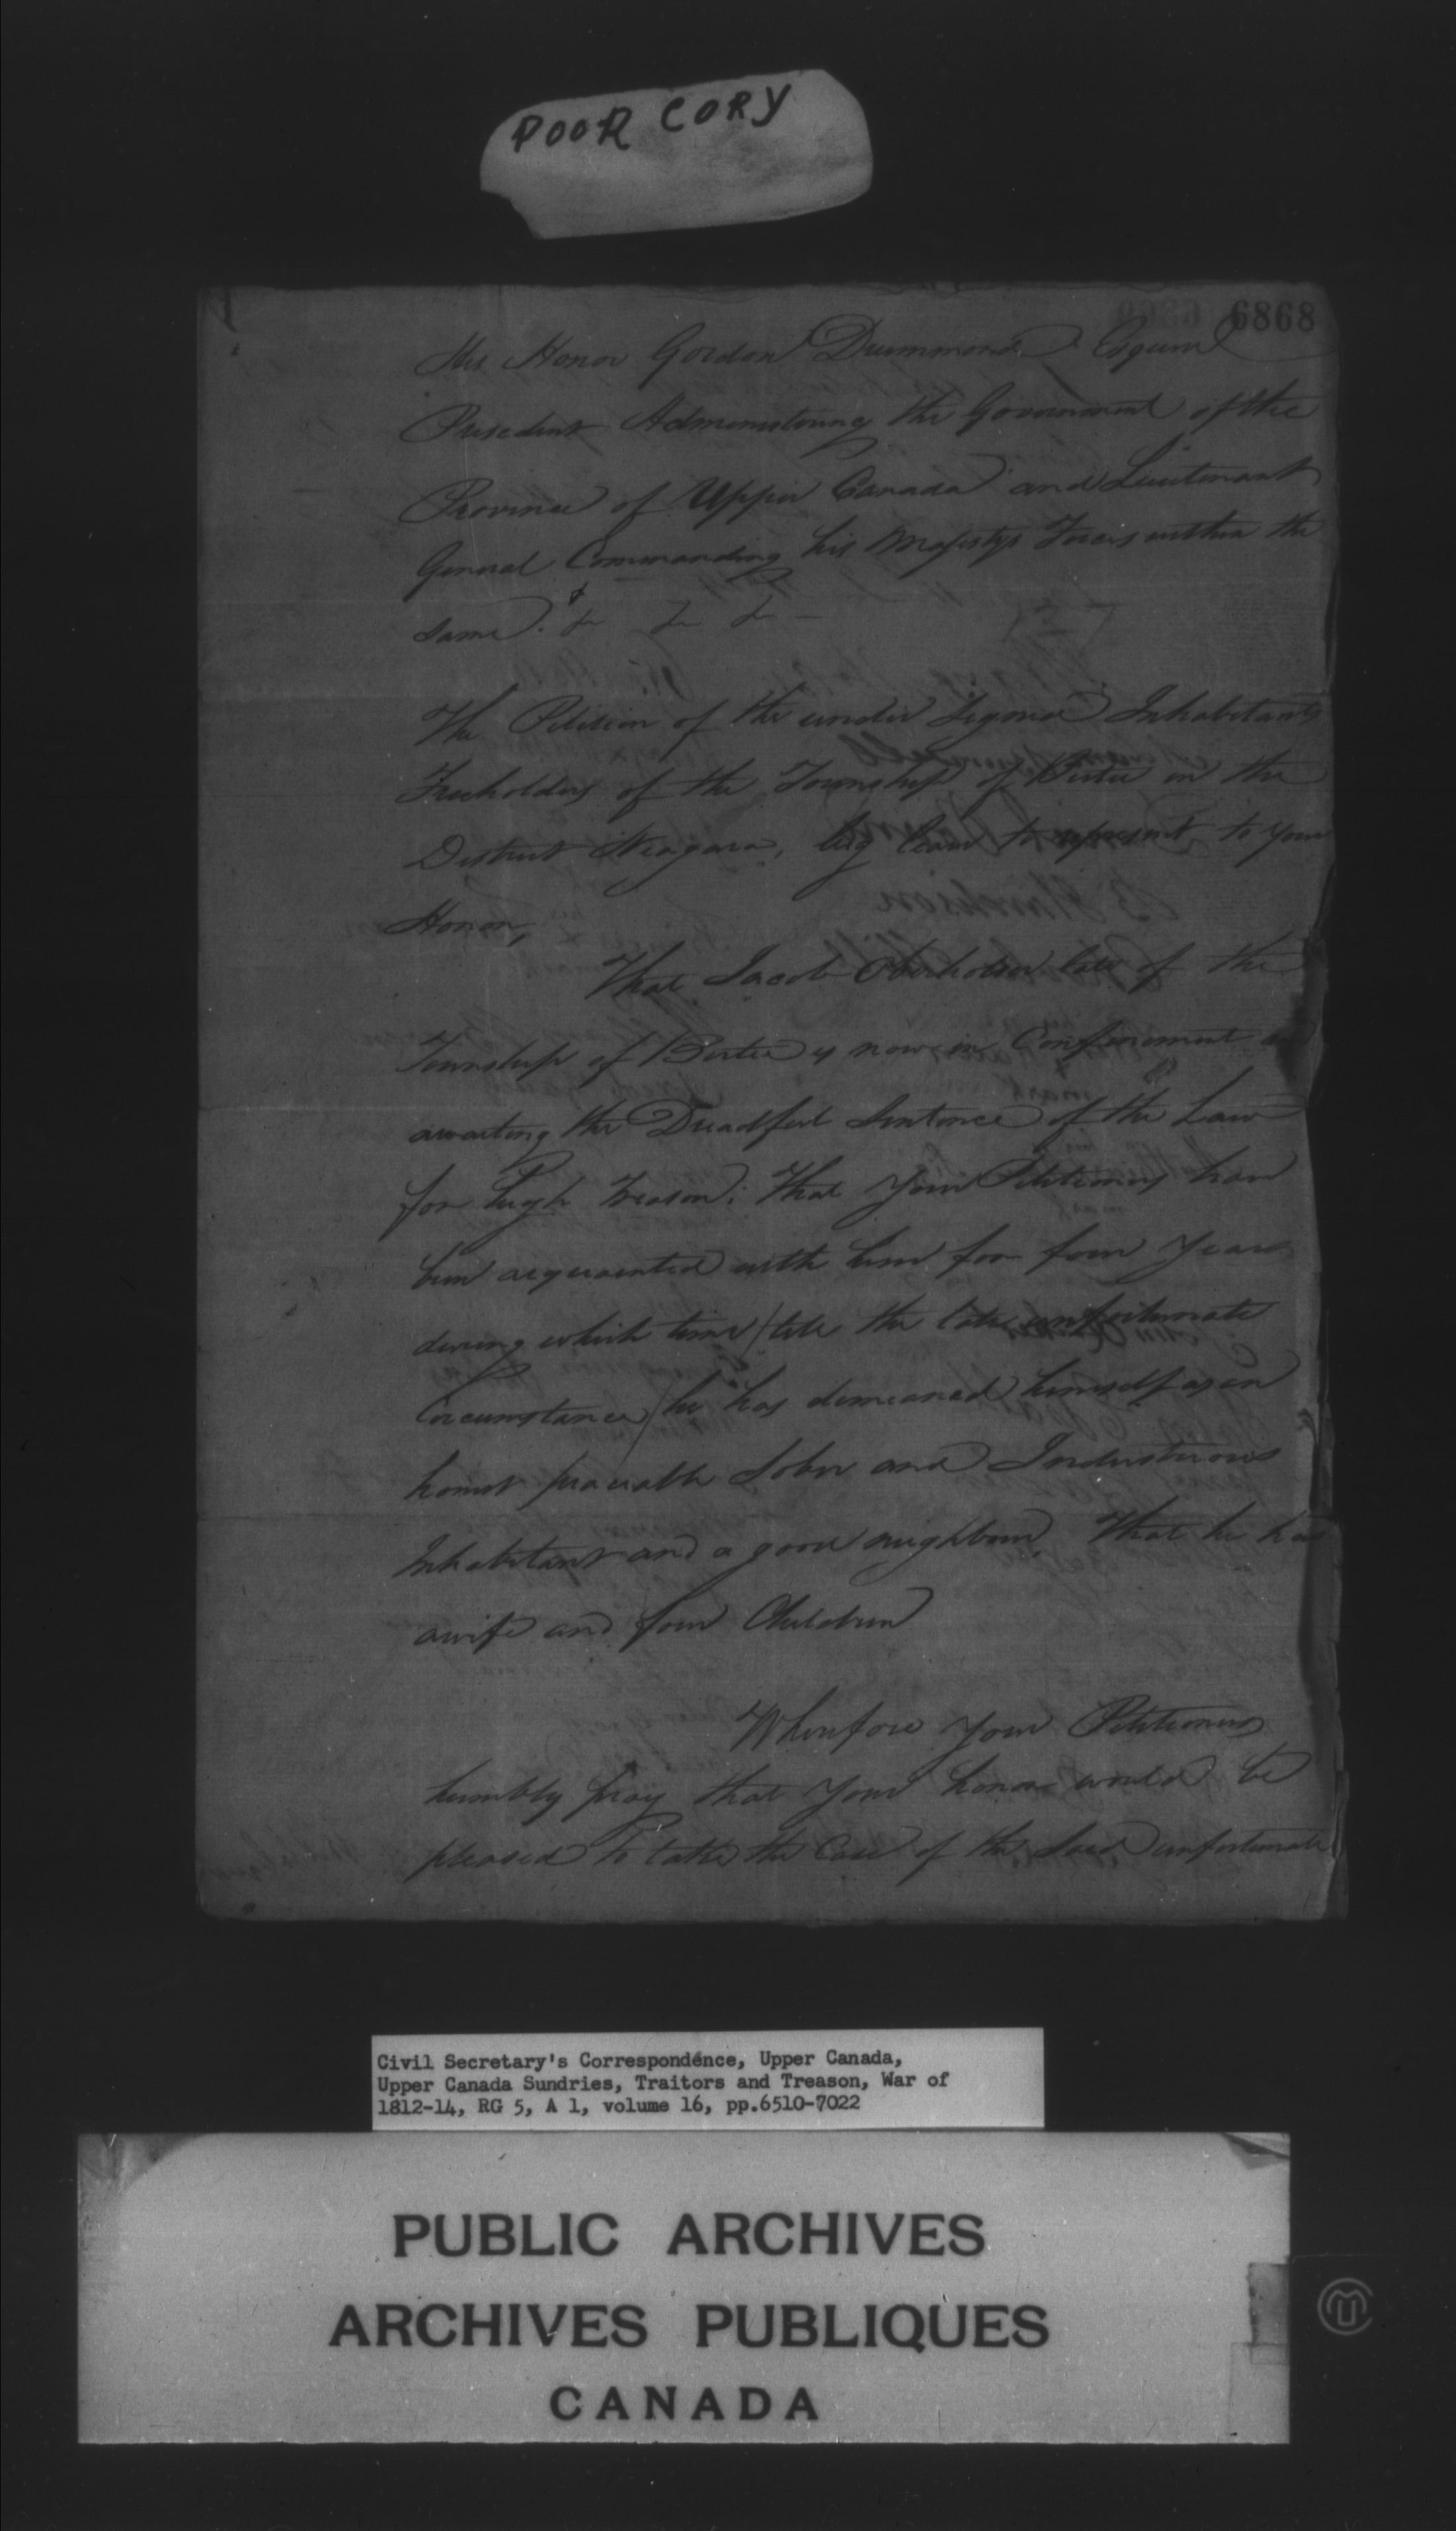 POOR COPY
6868
His Honor Gordon Drummond Esquire
President Administering the Government of the
Province of Upper Canada and Lieutenant
General Commanding his Majestys Forces within the
same. & & &
The Petition of the under Signed Inhabitants
Freeholders of the Township of Bertie in the
District Niagara, beg leave to represent to your
Honor,
That Jacob Overholser late of the
Township of Bertie is now in Confinement
awaiting the Dreadful Sentence of the Law
for high treason; That your Petitioners have
been acquainted with him for four years
during which time / till the late unfortunate
Circumstance / he has demeaned himself as an
honest peaceable Sober and Industrious
Inhabitant and a good neighbour, That he has
a wife and four Children
Wherefore your Petitioners
humbly pray that your honor would be
pleased to take the Case of the Said unfortunate
Civil Secretary's Correspondence, Upper Canada,
Upper Canada Sundries, Traitors and Treason, War of
1812-14, RG 5, A 1, volume 16, pp.6510-7022
PUBLIC ARCHIVES
ARCHIVES PUBLIQUES
CANADA